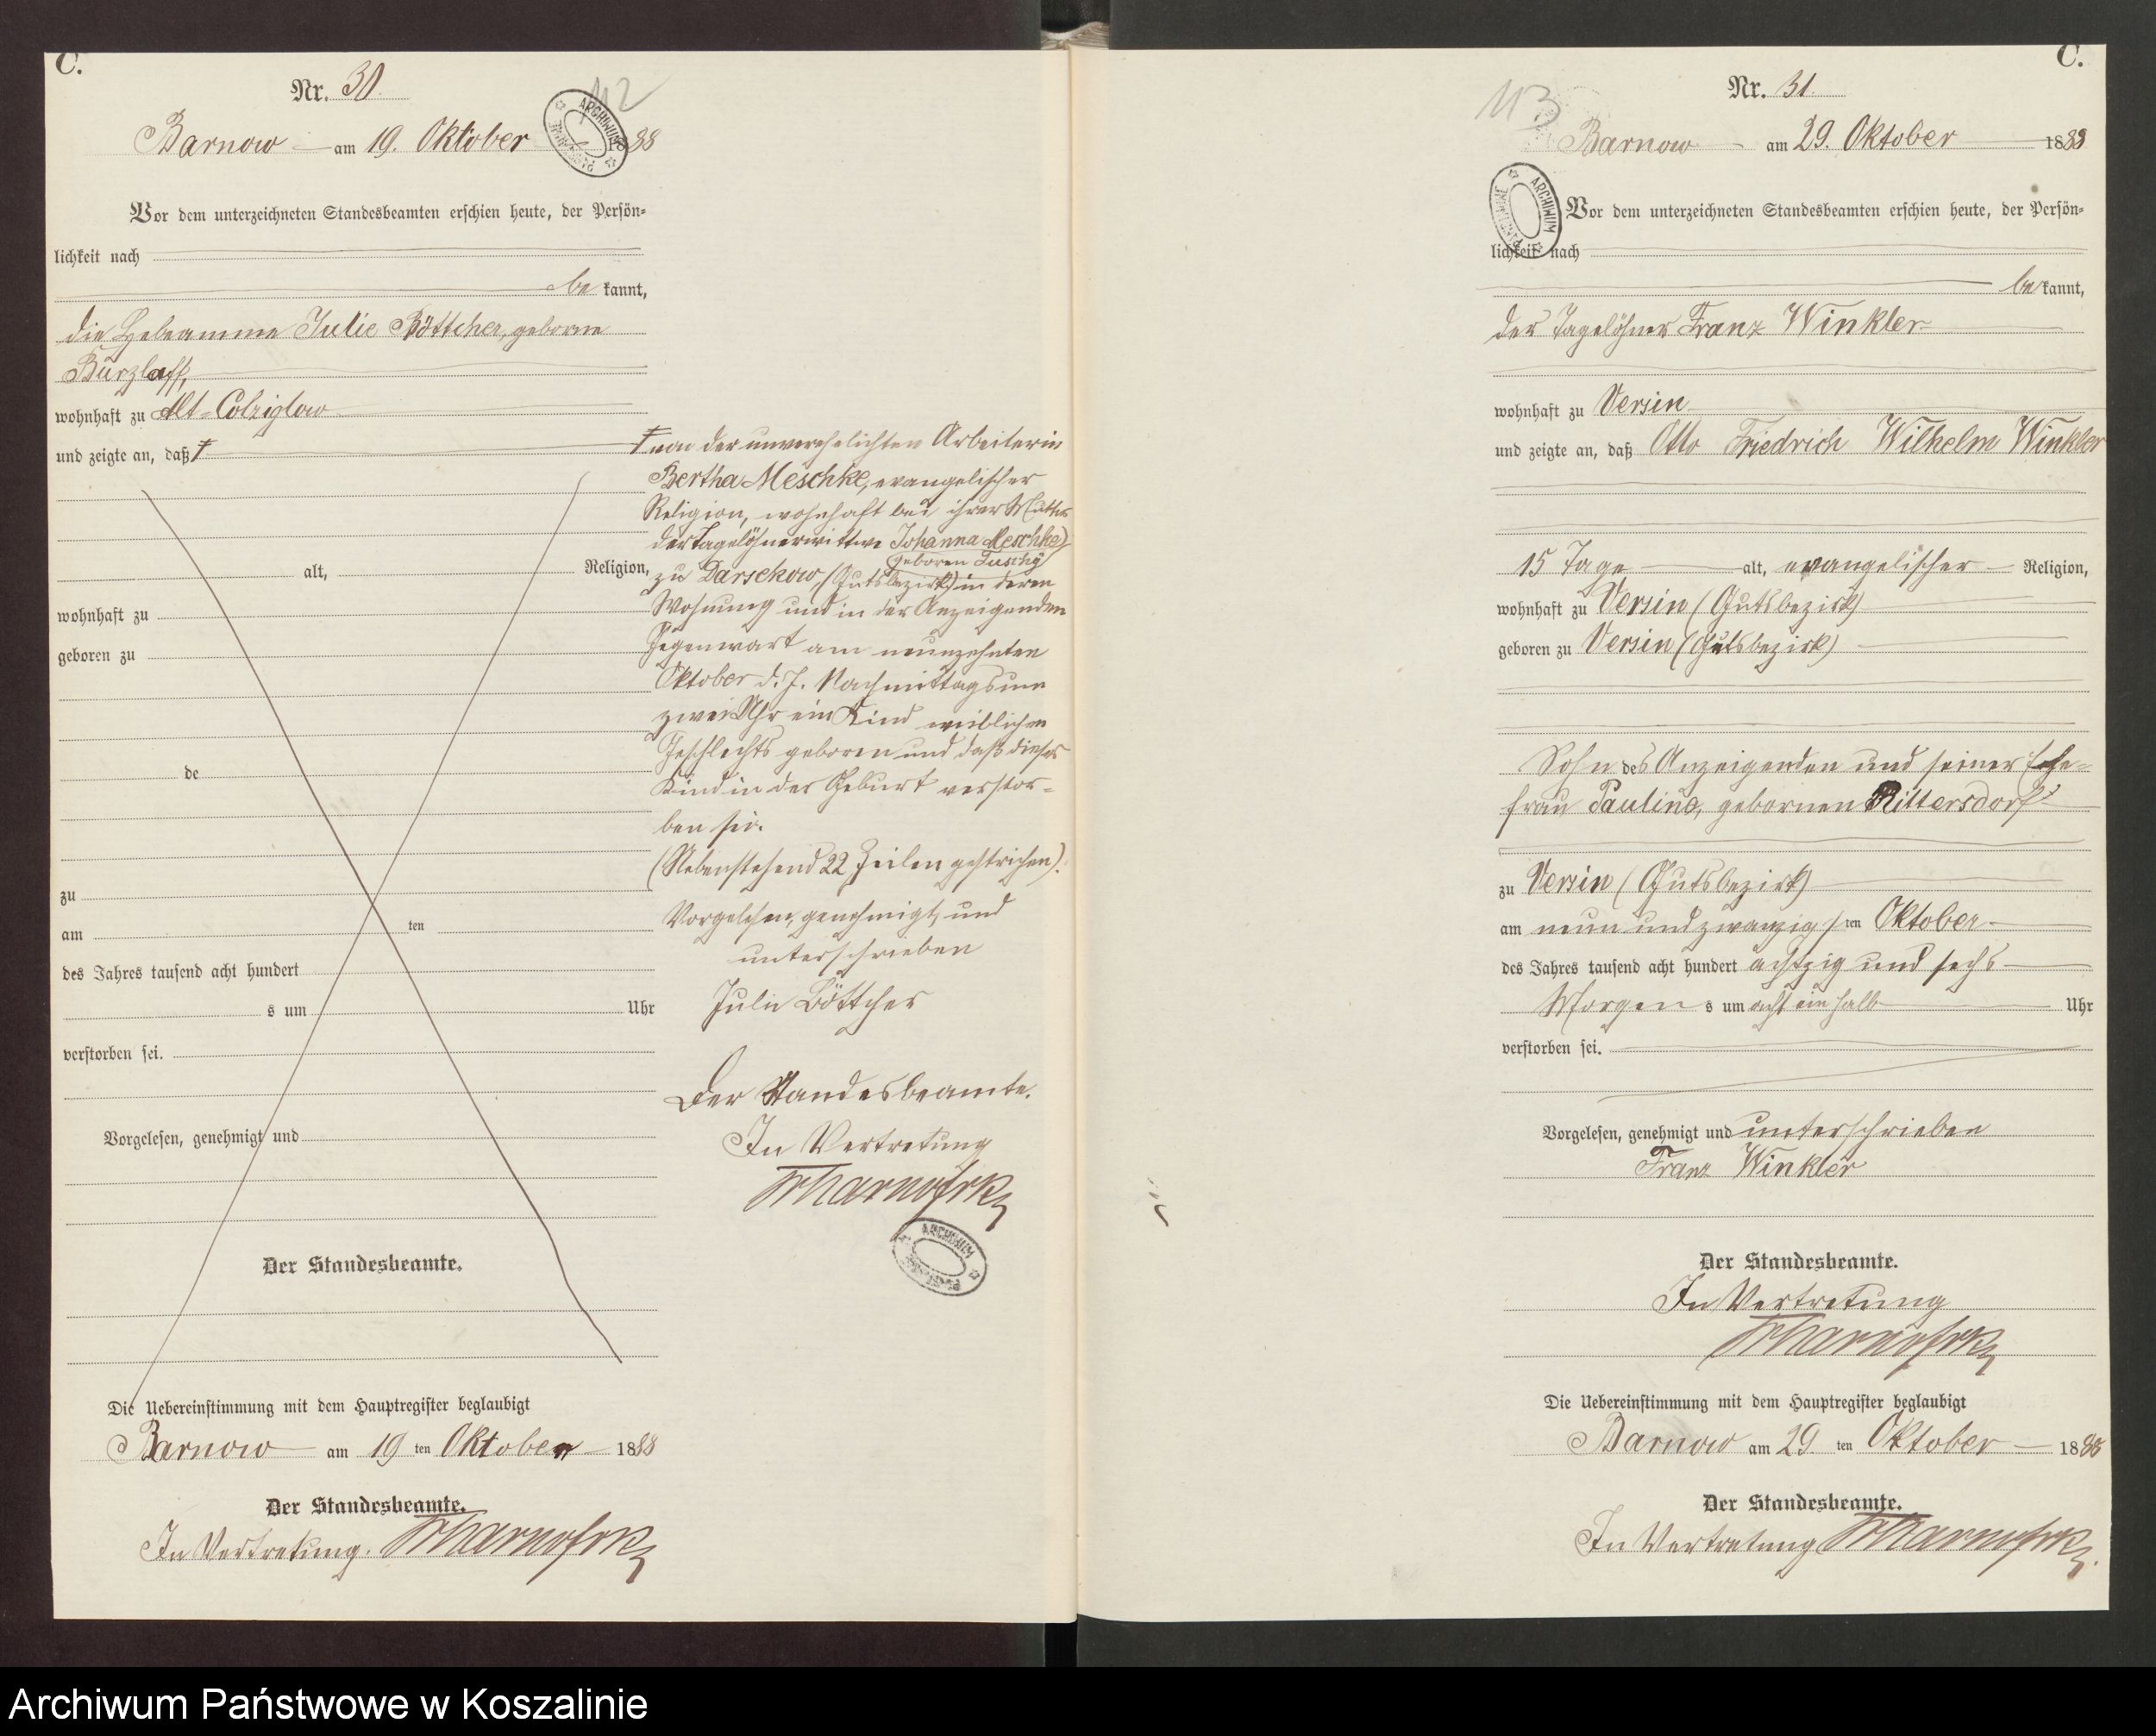 C.
Nr. 30.
112
Barnow am 19. Oktober 1888
Vor dem unterzeichneten Standesbeamten erschien heute, der Persön-
lichkeit nach
be kannt,
die Hebeamme Julie Böttcher, geborne
Bürzlaff,
wohnhaft zu Alt-Colziglow
und zeigte an, daß
alt, Religion,
wohnhaft zu
geboren zu
de
zu
am ten
des Jahres tausend acht hundert
s um Uhr
verstorben sei.
Vorgelesen, genehmigt und
Der Standesbeamte.
von der unverehelichten Arbeiterin
Bertha Meschke, evangelischer
Religion, wohnhaft bei ihrer Mutter
der Tagelöhnerwittwe Johanna Meschke
geboren
zu Darsekow, (Gutsbezirk) in deren
Wohnung und in der Anzeigenden
Gegenwart am neunzehnten
Oktober d. J. Nachmittags um
zwei Uhr ein Kind weiblichen
Geschlechts geboren und daß dieses
Kind in der Geburt verstor-
ben sei.
(Nebenstehend 22 Zeilen gestrichen).
Vorgelesen, genehmigt und
unterschrieben
Julie Böttcher
Der Standesbeamte.
In Vertretung
ARCHIWUM
Die Uebereinstimmung mit dem Hauptregister beglaubigt
Barnow am 19 ten Oktober 1888
Der Standesbeamte.
In Vertretung.
C.
Nr. 31.
113
Barnow am 29. Oktober 1888
ARCHIWUM
Vor dem unterzeichneten Standesbeamten erschien heute, der Persön-
lichkeit nach
be kannt,
der Tagelöhner Franz Winkler
wohnhaft zu Versin
und zeigte an, daß Otto Friedrich Wilhelm Winkler
15 Tage alt, evangelischer Religion,
wohnhaft zu Versin (Gutsbezirk)
geboren zu Versin (Gutsbezirk)
Sohn des Anzeigenden und seiner Ehe-
frau Pauline, gebornen Rittersdorf
zu Versin (Gutsbezirk)
am neun und zwanzigs ten Oktober
des Jahres tausend acht hundert achtzig und sechs
Morgen s um acht ein halb Uhr
verstorben sei.
Vorgelesen, genehmigt und unterschrieben
Franz Winkler
Der Standesbeamte.
In Vertretung
Die Uebereinstimmung mit dem Hauptregister beglaubigt
Barnow am 29 ten Oktober 1888
Der Standesbeamte.
In Vertretung
Archiwum Państwowe w Koszalinie